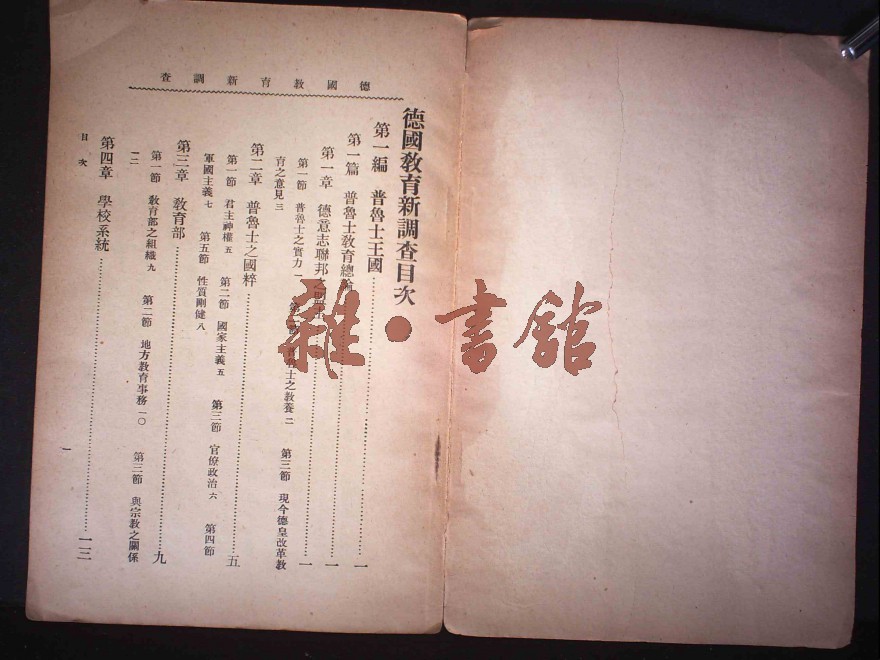 德國教育新調查
德國教育新調查目次
第一編 普魯士王國……一
第一篇 普魯士教育總論……一
第一章 德意志聯邦之……一
第一節 普魯士之實力一 第二節 普魯士之教養二 第三節 現今德皇改革教
育之意見三
第二章 普魯士之國粹……五
第一節 君主神權五 第二節 國家主義五 第三節 官僚政治六 第四節
軍國主義七 第五節 性質剛健八
第三章 教育部……九
第一節 教育部之組織九 第二節 地方教育事務一〇 第三節 與宗教之關係
一二
第四章 學校系統……一三
目次
一
雜·書館